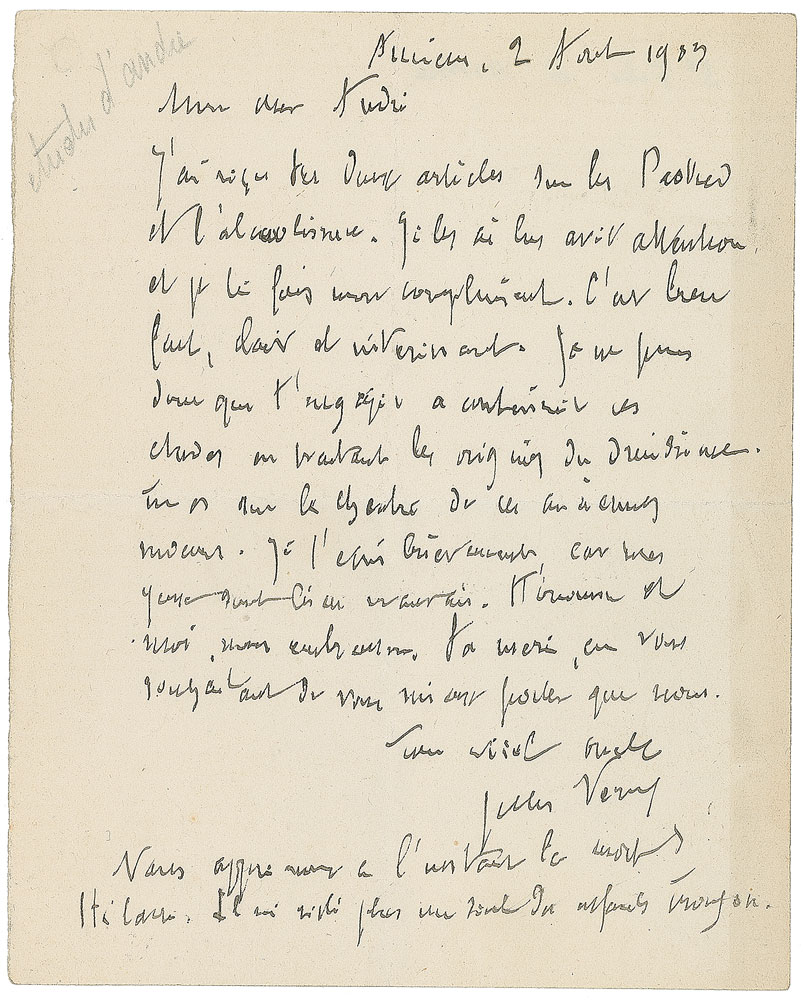 études d'andré
Amiens, 2 Août 1903
Mon cher André
J'ai reçu tes deux articles sur les
et l'alcoolisme. Je les ai lus avec attention
et je te fais mon compliment. C'est bien
fait, clair et intéressant. Je ne puis
donc que t'engager a continuer ces
études en traitant les origines du druidisme.
sur le théatre de ces anciennes
moeurs. Je t'écris brièvement, car mes
yeux sont bien mauvais. Honorine et
moi, nous embrassons, ta mère, en vous
souhaitant de vous mieux porter que nous.
Ton vieil oncle
Jules Verne
Nous apprenons a l'instant la mort d'
Hilaire. Il ne reste plus un seul des enfants